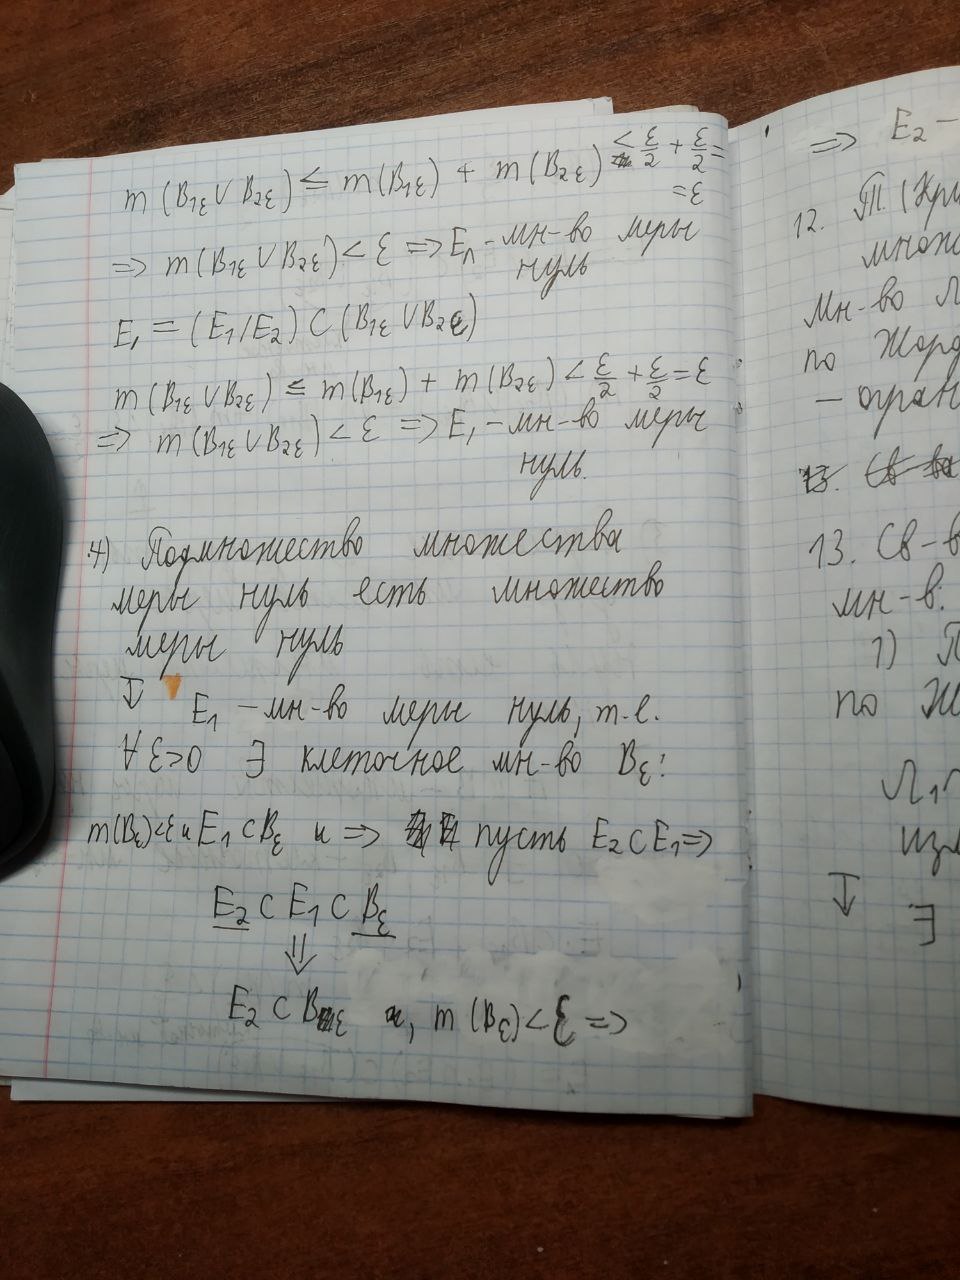 m (B₁ε ∪ B₂ε) ≤ m(B₁ε) + m(B₂ε) < ε/2 + ε/2 =
= ε
=> m(B₁ε ∪ B₂ε) < ε => E∩ - мн-во меры
нуль
E₁ = (E₁/E₂) ⊂ (B₁ε ∪ B₂ε)
m(B₁ε ∪ B₂ε) ≤ m(B₁ε) + m(B₂ε) < ε/2 + ε/2 = ε
=> m(B₁ε ∪ B₂ε) < ε => E₁ - мн-во меры
нуль.
4) Подмножество множества
меры нуль есть множество
меры нуль
E₁ - мн-во меры нуль, т.е.
∀ ε>0 ∃ клеточное мн-во Bε:
m(Bε)<ε и E₁ ⊂ Bε и => пусть E₂ ⊂ E₁ =>
E₂ ⊂ E₁ ⊂ Bε
⇓
E₂ ⊂ Bε и, m(Bε) < ε =>
=> E₂ -
12. Т. (Кри
множ
Мн-во
по Жорд
- огран
13. Св-в
мн-в:
1) П
по Ж
изм
∃